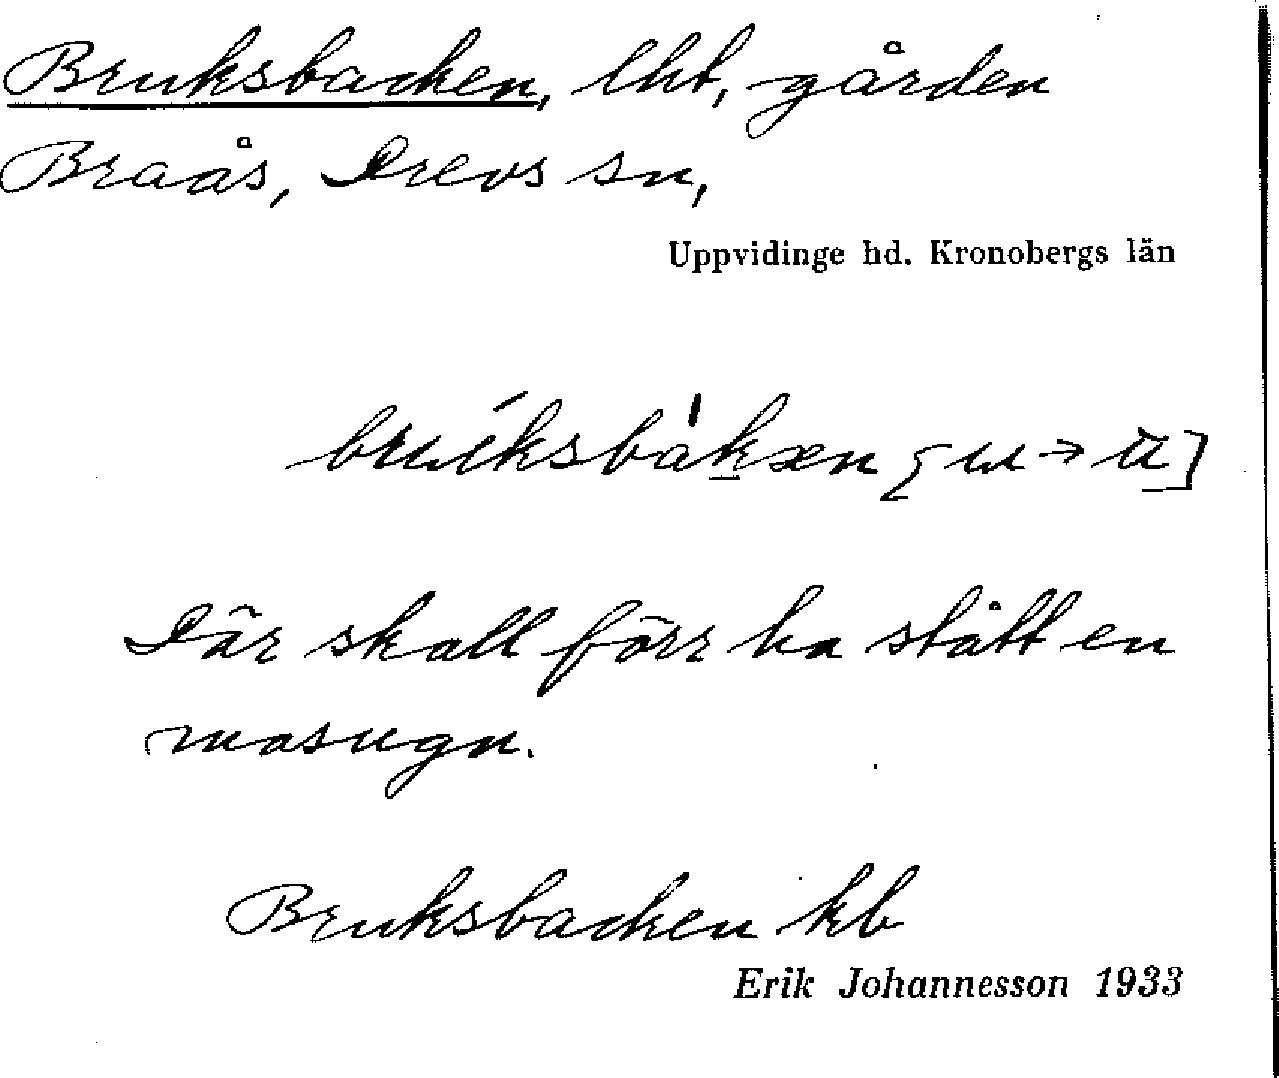 Bruksbacken, lht, gården
Braås, Drevs sn,
Uppvidinge hd. Kronobergs län
Där skall förr ha stått en
masugn.
Bruksbacken kb
Erik Johannesson 1933